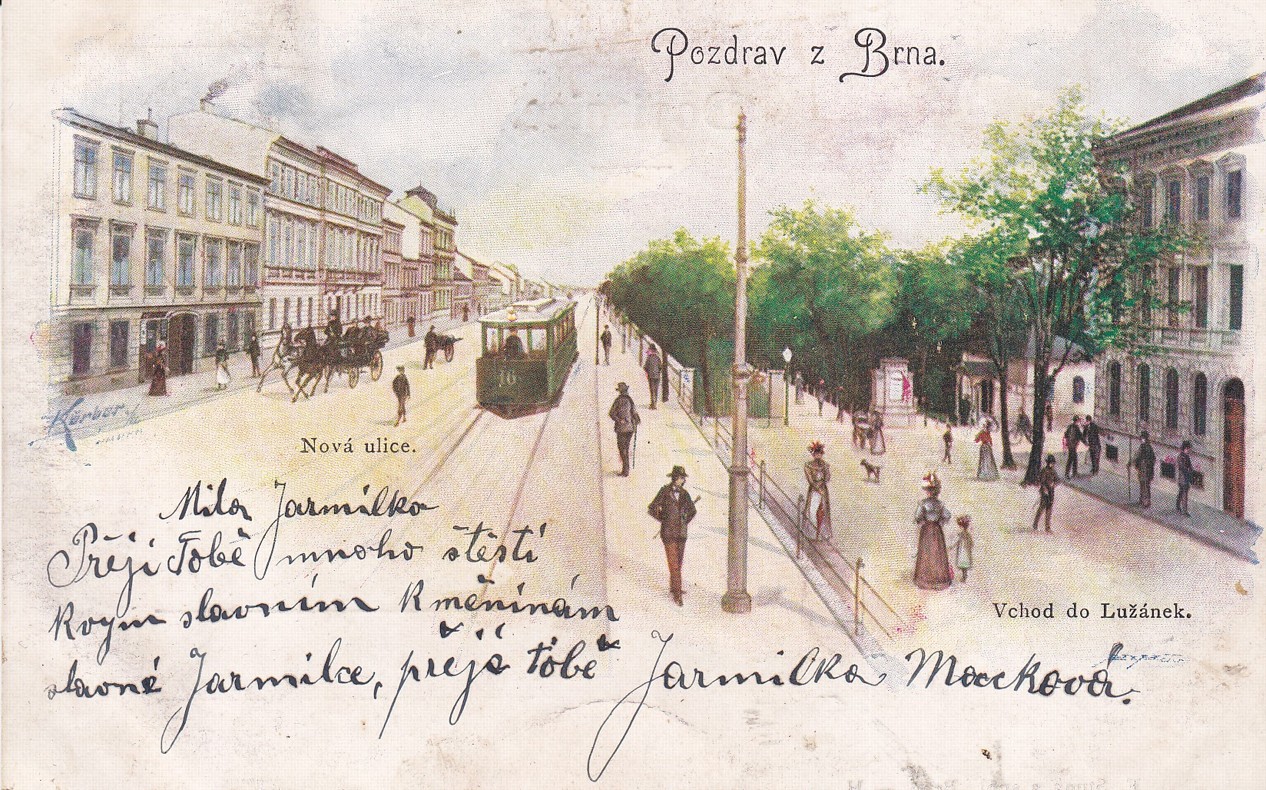 Pozdrav z Brna.
16
Körber
Nová ulice.
Vchod do Lužánek.
Mila Jarmilko
Přeji Tobě mnoho stěstí
slavním K měninám
slavné Jarmilce, přeje tobě Jarmilka Macková.